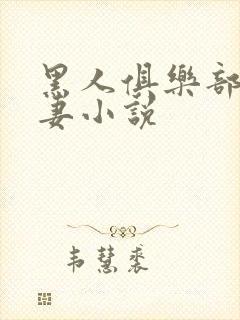 黑人俱樂部
妻小說
韦慧裘